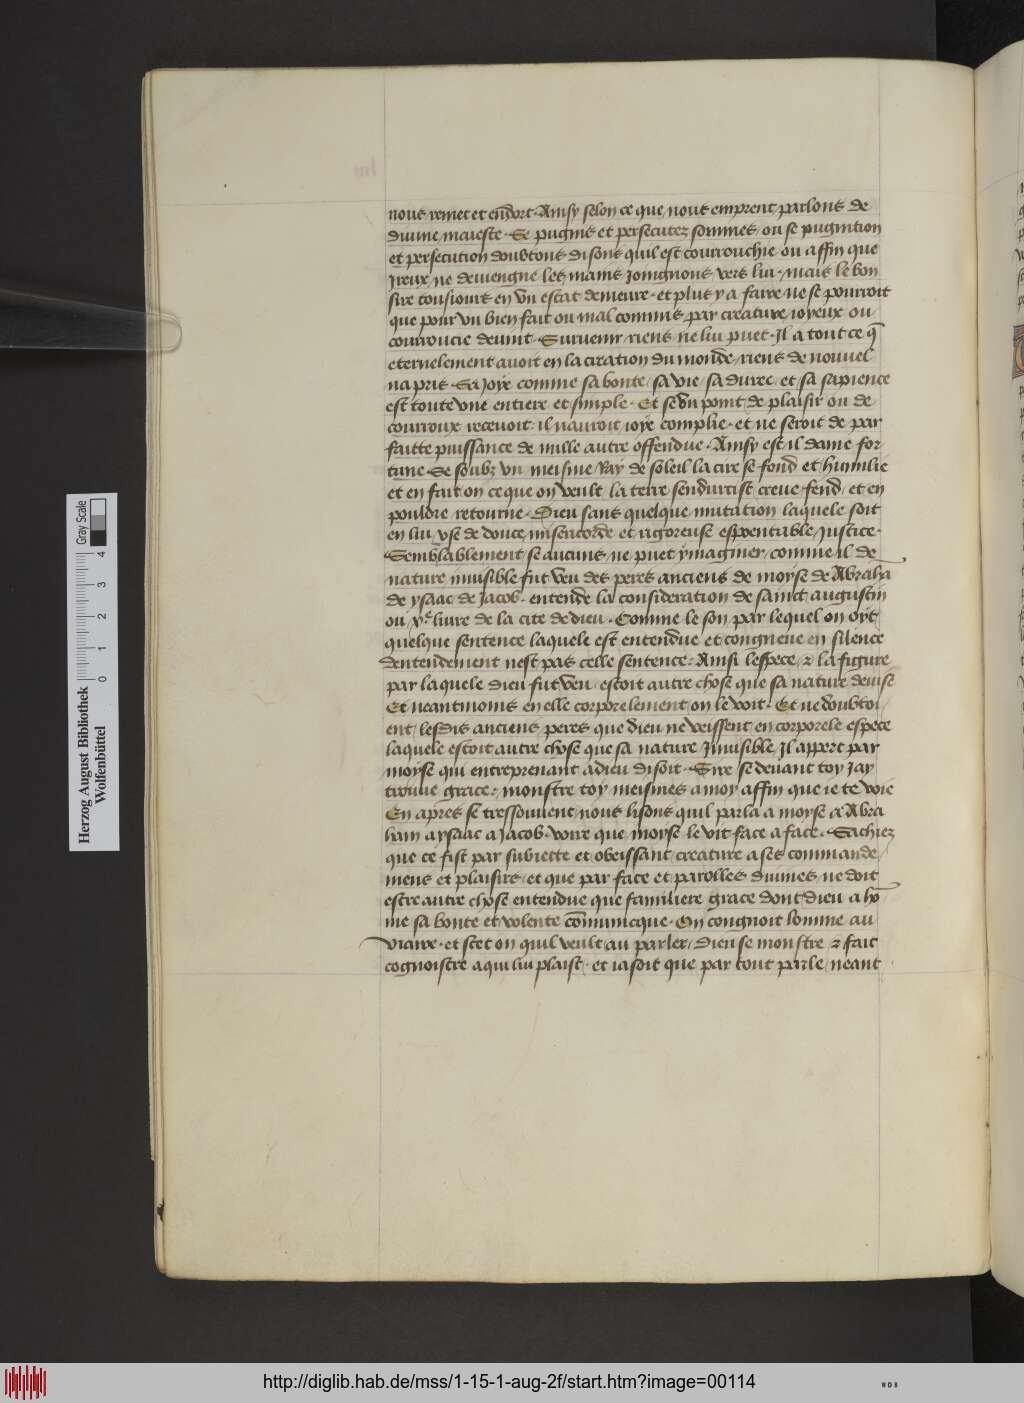 nous remet et endort · Ainsy selon ce que nous emprent parlons de
diuine maieste · Se pugnis et persecutez sommes, ou se pugnition
et persecution doubtons disons quil est courrouchie ou affin que
Jreux ne deuiengne les mains Joingnons vers lui · mais le bon
sire tousiours en vn estat demeure · et plus y a faire ne se pourroit
que pour vn bien fait ou mal commis par creature ioyeux ou
courroucie deuint · Suruenir riens ne lui puet · Il a tout ce q̄
eternelement auoit en la creation du monde riens de nouuel
na pris · Sa Joye comme sa bonte, sa vie, sa duree, et sa sapience
est toute vne entiere et simple · Et se vn point de plaisir ou de
courroux receuoit: il nauroit ioye complie · et ne seroit de par
faitte puissance de mille autre offendue · Ainsy est il dame for
tune · Se soubz vn meisme Ray de soleil la cire se fond et humilie
et en fait on ce que on veult la terre sendurcist creue fend et en
pouldre retourne · Dieu sans quelque mutation laquele soit
en lui vse de douce misericorde et rigoreuse espoentable Justice ·
Semblablement se aucuns ne puet ymaginer comme il de
nature inuisible fut veu des peres anciens de moyse de Abrahā
de ysaac de Jacob · entende la consideration de sainct augustin
ou xe liure de la cite de dieu · Comme le son par lequel on oyt
quelque sentence laquele est entendue et congneue en silence
dentendement nest pas celle sentence: Ainsi lespece ⁊ la figure
par laquele dieu fut veu estoit autre chose que sa nature deuise
Et neantmoins en elle corporelement on le voit · Et ne doubtoi
ent lesdis anciens peres que dieu ne veissent en corporele espece
laquele estoit autre chose que sa nature Jnuisible Il appert par
moyse qui entreprenant a dieu disoit · Sire se deuant toy Jay
trouue grace: monstre toy meismes a moy affin que ie te voie
En apres se tressouuient nous lisons quil parla a moyse a Abra
ham a ysaac a Jacob · voire que moyse le vit face a face · Sachiez
que ce fist par subiette et obeissant creature a ses commande
mens et plaisirs et que par face et parolles diuines ne doit
estre autre chose entendue que familiere grace dont dieu a hō
me sa bonte et volente cōmunicque · On congnoit lomme au
viaire · et scet on quil veult au parler, Dieu se monstre ⁊ fait
cognoistre a qui lui plaist · et ia soit que par tout parle neant
Herzog August Bibliothek
Wolfenbüttel
0 1 2 3 4
Gray Scale
http://diglib.hab.de/mss/1-15-1-aug-2f/start.htm?image=00114